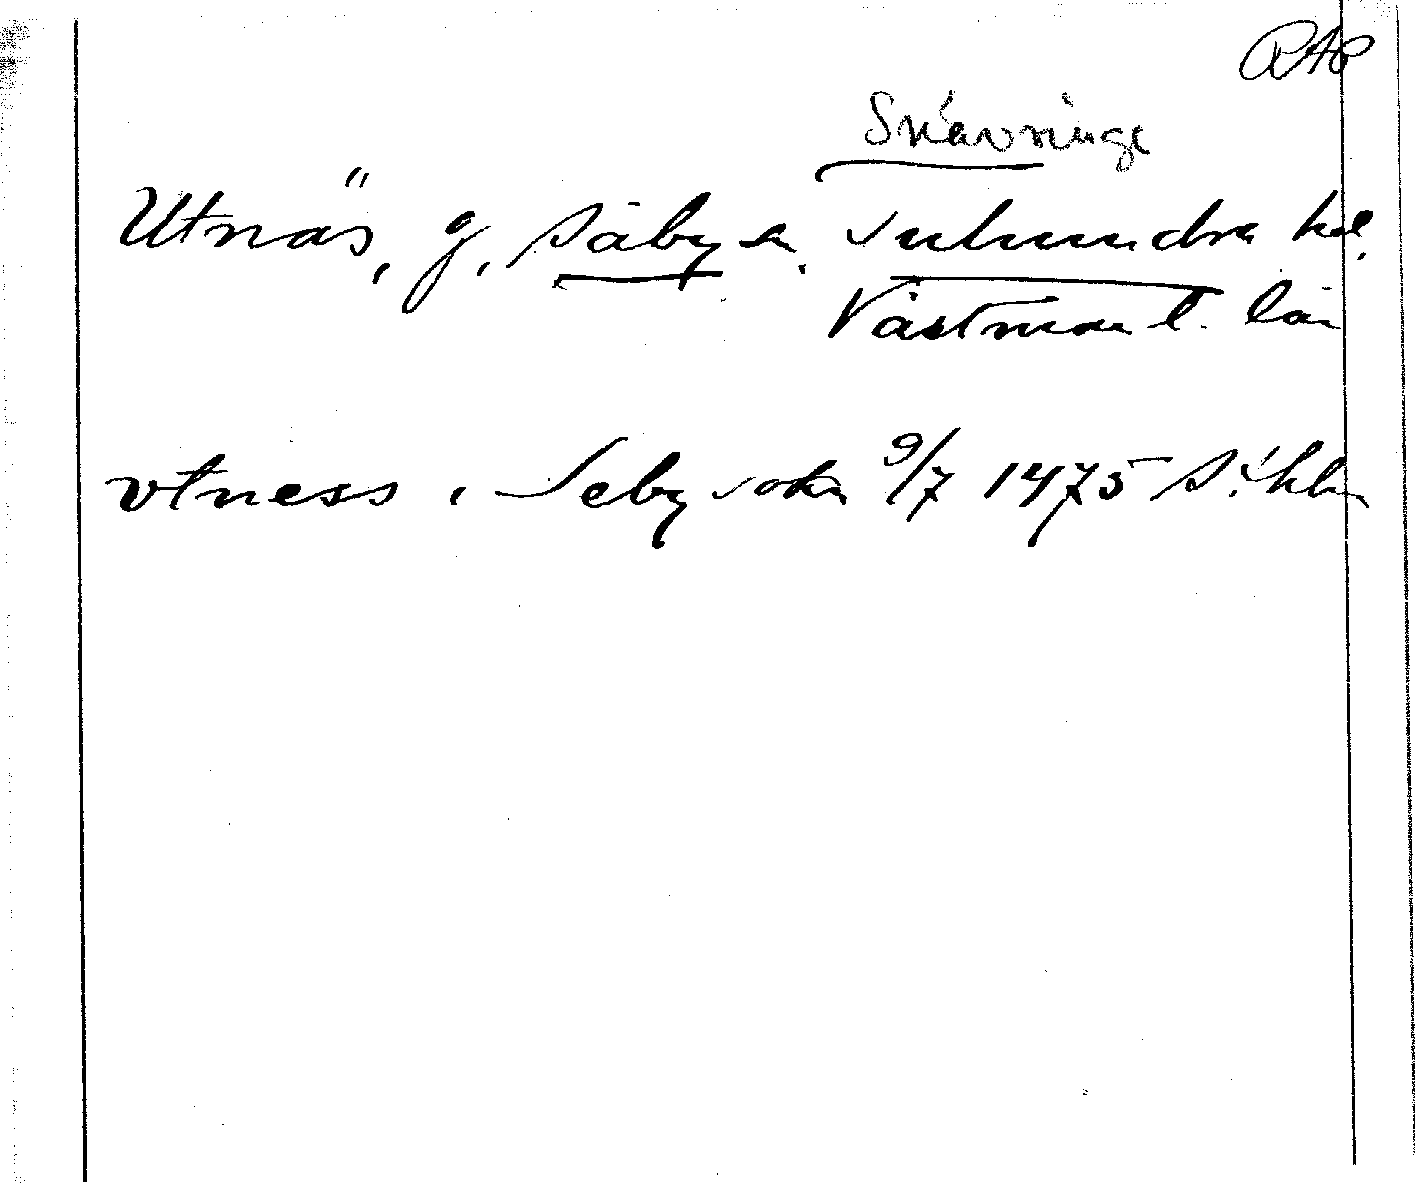 RAP
Snävringe
Utnäs, g, Säby sn. Snhundra hd.
Västman l. län
vtness i Seby sokn 9/7 1475 Sthlm